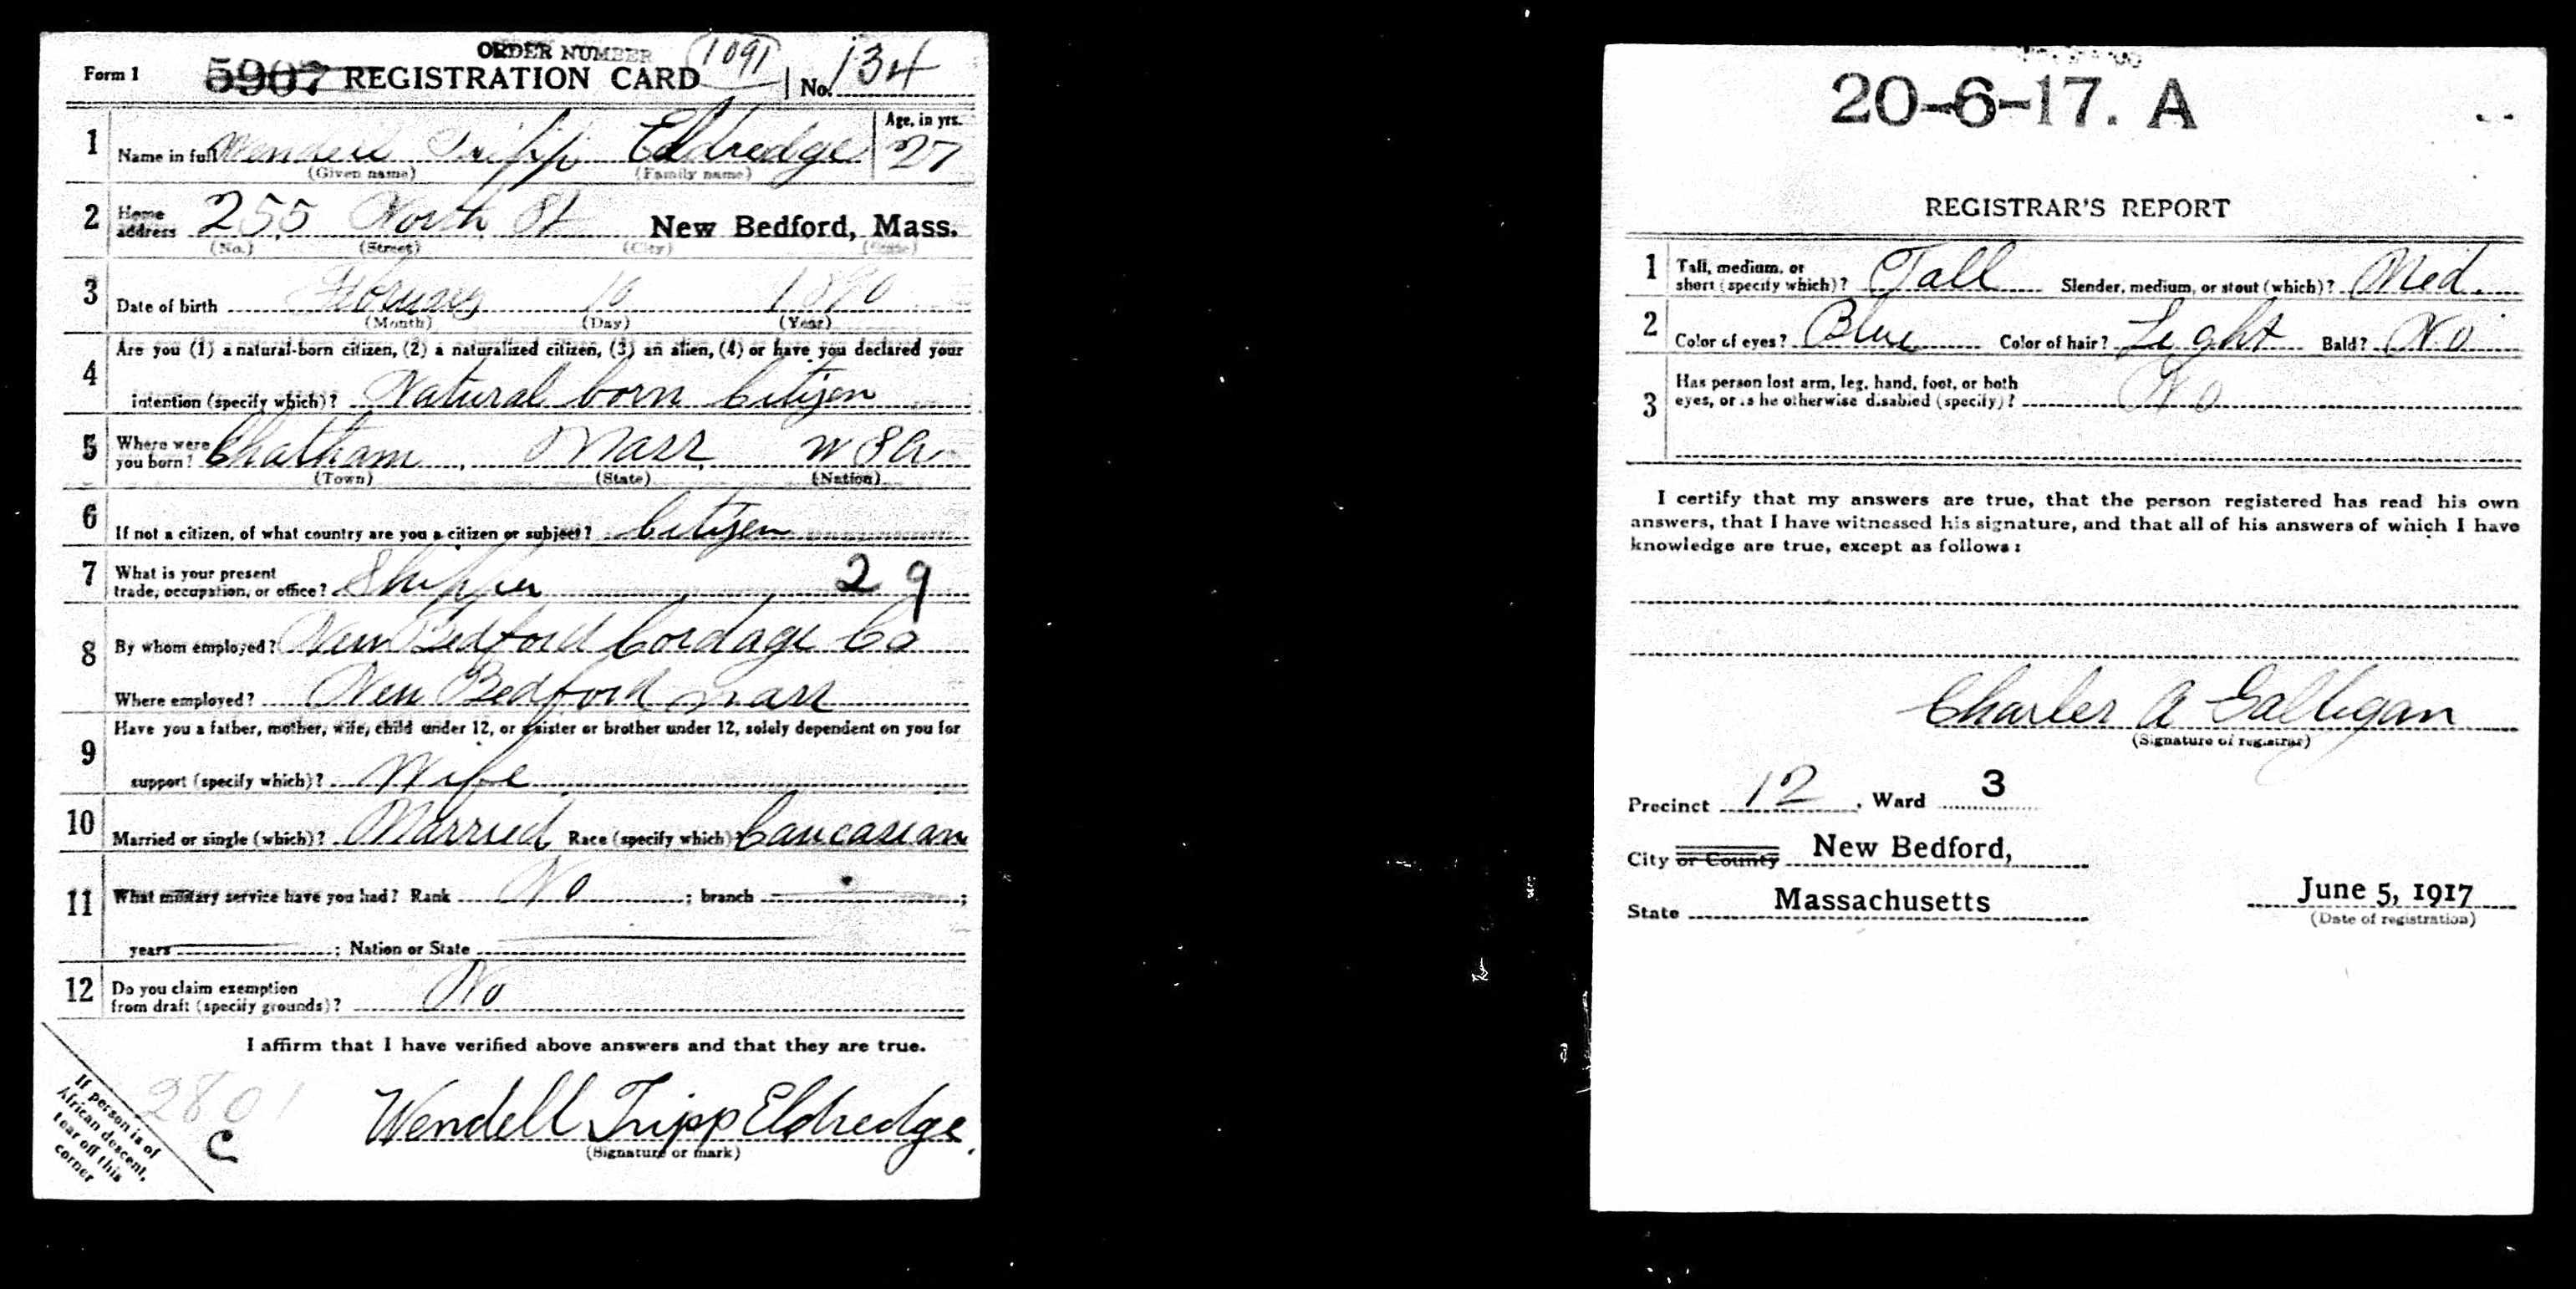 ORDER NUMBER 1091
Form 1 5907 REGISTRATION CARD No. 134
1 Name in full Wendell Tripp Eldredge Age, in yrs. 27
(Given name) (Family name)
2 Home address 255 North St New Bedford, Mass.
(No.) (Street) (City) (State)
3 Date of birth 10 1890
(Month) (Day) (Year)
4 Are you (1) a natural-born citizen, (2) a naturalized citizen, (3) an alien, (4) or have you declared your
intention (specify which)? Natural born Citizen
5 Where were you born? Chatham, Mass, USA.
(Town) (State) (Nation)
6 If not a citizen, of what country are you a citizen or subject? Citizen
7 What is your present trade, occupation, or office? Shipper 29
8 By whom employed? New Bedford Cordage Co
Where employed? New Bedford Mass
9 Have you a father, mother, wife, child under 12, or a sister or brother under 12, solely dependent on you for
support (specify which)? Wife
10 Married or single (which)? Married Race (specify which)? Caucasian
11 What military service have you had? Rank No ; branch ;
years ; Nation or State
12 Do you claim exemption from draft (specify grounds)? No
I affirm that I have verified above answers and that they are true.
2801
C
Wendell Tripp Eldredge.
(Signature or mark)
If person is of
African descent,
tear off this
corner
20-6-17. A
REGISTRAR'S REPORT
1 Tall, medium, or short (specify which)? Tall Slender, medium, or stout (which)? Med.
2 Color of eyes? Blue Color of hair? Light Bald? No
3 Has person lost arm, leg, hand, foot, or both
eyes, or is he otherwise disabled (specify)? No
I certify that my answers are true, that the person registered has read his own
answers, that I have witnessed his signature, and that all of his answers of which I have
knowledge are true, except as follows:
Charles A Galligan
(Signature of registrar)
Precinct 12, Ward 3
City or County New Bedford,
State Massachusetts
June 5, 1917
(Date of registration)